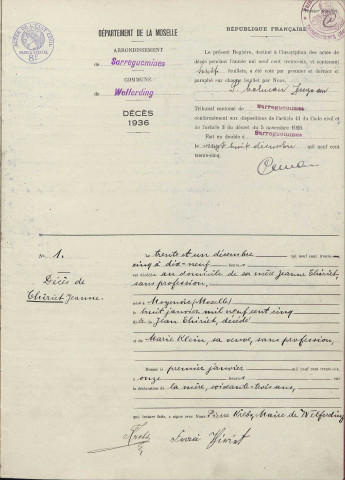 DÉPARTEMENT DE LA MOSELLE
ARRONDISSEMENT
de Sarreguemines
COMMUNE
de Welferding
DÉCÈS
1936
RÉPUBLIQUE FRANÇAISE
Le présent Registre, destiné à l'inscription des actes de
décès pendant l'année mil neuf cent trente-six, et contenant
feuillets, a été coté par premier et dernier et
paraphé sur chaque feuillet par Nous,
Tribunal cantonal de Sarreguemines
conformément aux dispositions de l'article 41 du Code civil et
de l'article 3 du décret du 5 novembre
Fait en double à Sarreguemines
le vingt huit décembre mil neuf cent
trente-cinq.
N° 1.
Décès de
Thiriet Jeanne.
Le trente et un décembre mil neuf cent trente-
cinq à dix-neuf heures
est décédée au domicile de sa mère Jeanne Thiriet,
sans profession,
née à Moyeuvre (Moselle)
le huit janvier mil neuf cent cinq
fille de Jean Thiriet, décédé
et de Marie Klein, sa veuve, sans profession,
Dressé le premier janvier mil neuf cent trente-six,
à onze heures
la déclaration de la mère, soixante-trois ans,
qui, lecture faite, a signé avec Nous Pierre Krebs, Maire de Welferding
Krebs
Thiriet